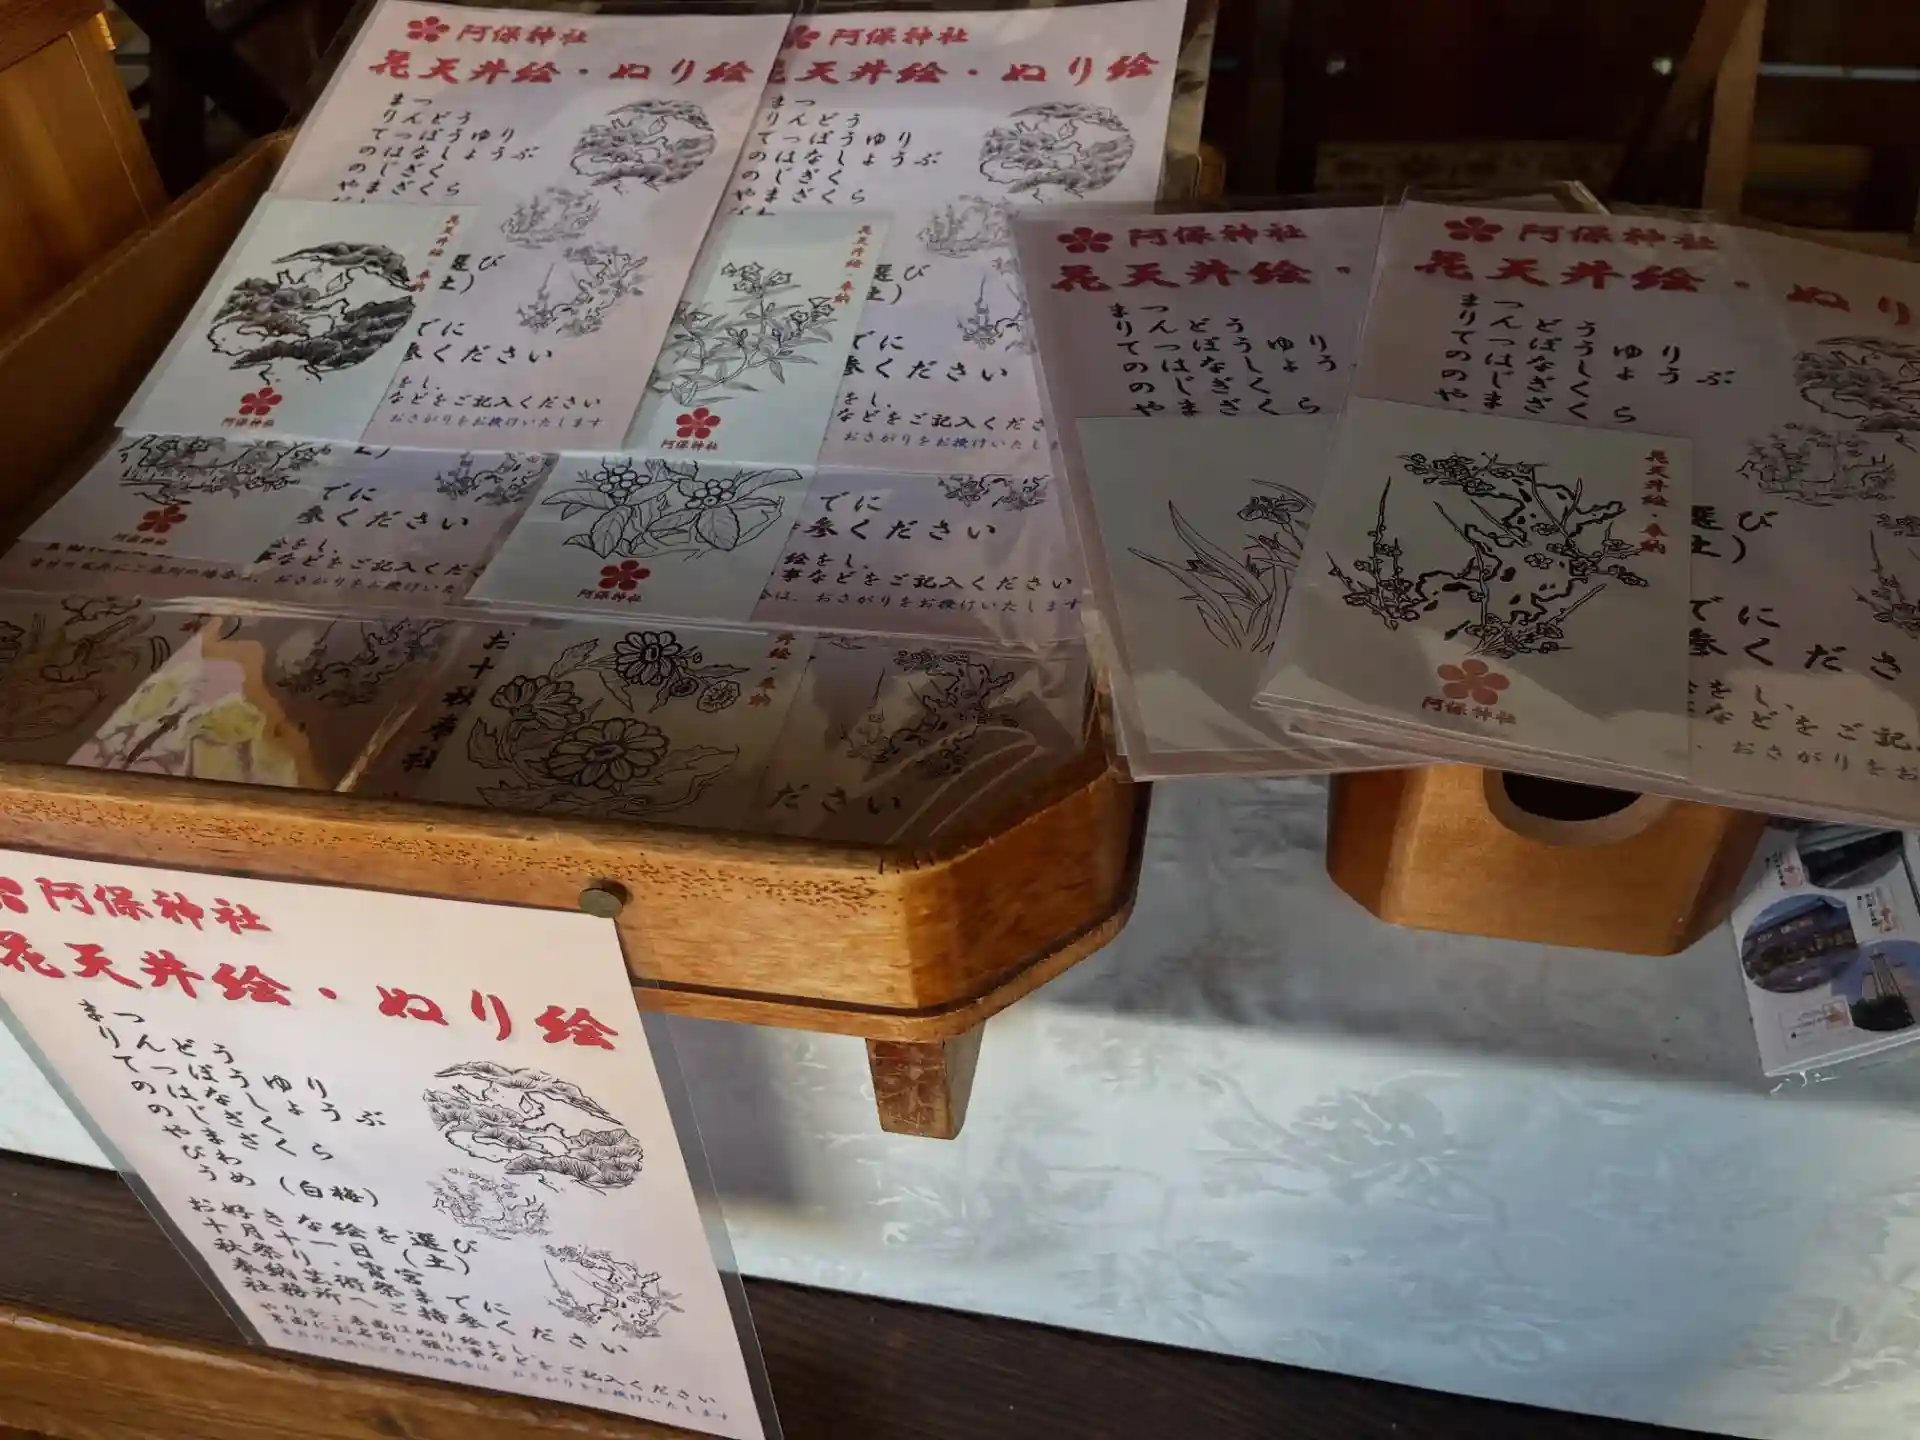 阿保神社
花天井絵・ぬり絵
まつ
りんどう
てっぽうゆり
のはなしょうぶ
のじぎく
やまざくら
選び
土)
でに
参ください
をし、
などをご記入ください
おさがりをお授けいたします
花天井絵・奉納
阿保神社
阿保神社
花天井絵・ぬり絵
まつ
りんどう
てっぽうゆり
のはなしょうぶ
のじぎく
やまざくら
びわ
選び
土)
でに
参ください
をし、
などをご記入くださ
おさがりをお授けいたしま
花天井絵・奉納
阿保神社
阿保神社
花天井絵・
まつ
りんどう
てっぽうゆり
のはなしょう
のじぎく
やまざくら
阿保神社
花天井絵・ぬり
まつ
りんどう
てっぽうゆり
のはなしょうぶ
のじぎく
やまざくら
選び
土)
でに
参くださ
をし、
などをご記
おさがりをお
花天井絵・奉納
阿保神社
でに
参ください
をし、
などをご記入くだ
おさがりをお授けいた
阿保神社
でに
参ください
絵をし、
事などをご記入ください
合は、おさがりをお授けいたします
阿保神社
井絵・奉納
ださい
阿保神社
花天井絵・ぬり絵
まつ
りんどう
てっぽうゆり
のはなしょうぶ
のじぎく
やまざくら
びわ
うめ(白梅)
お好きな絵を選び
十月十一日(土)
秋祭り・宵宮
奉納芸術祭までに
社務所へご持参ください
やり方:表面はぬり絵をし、
裏面にお名前・願い事などをご記入ください
おさがりをお授けいたします